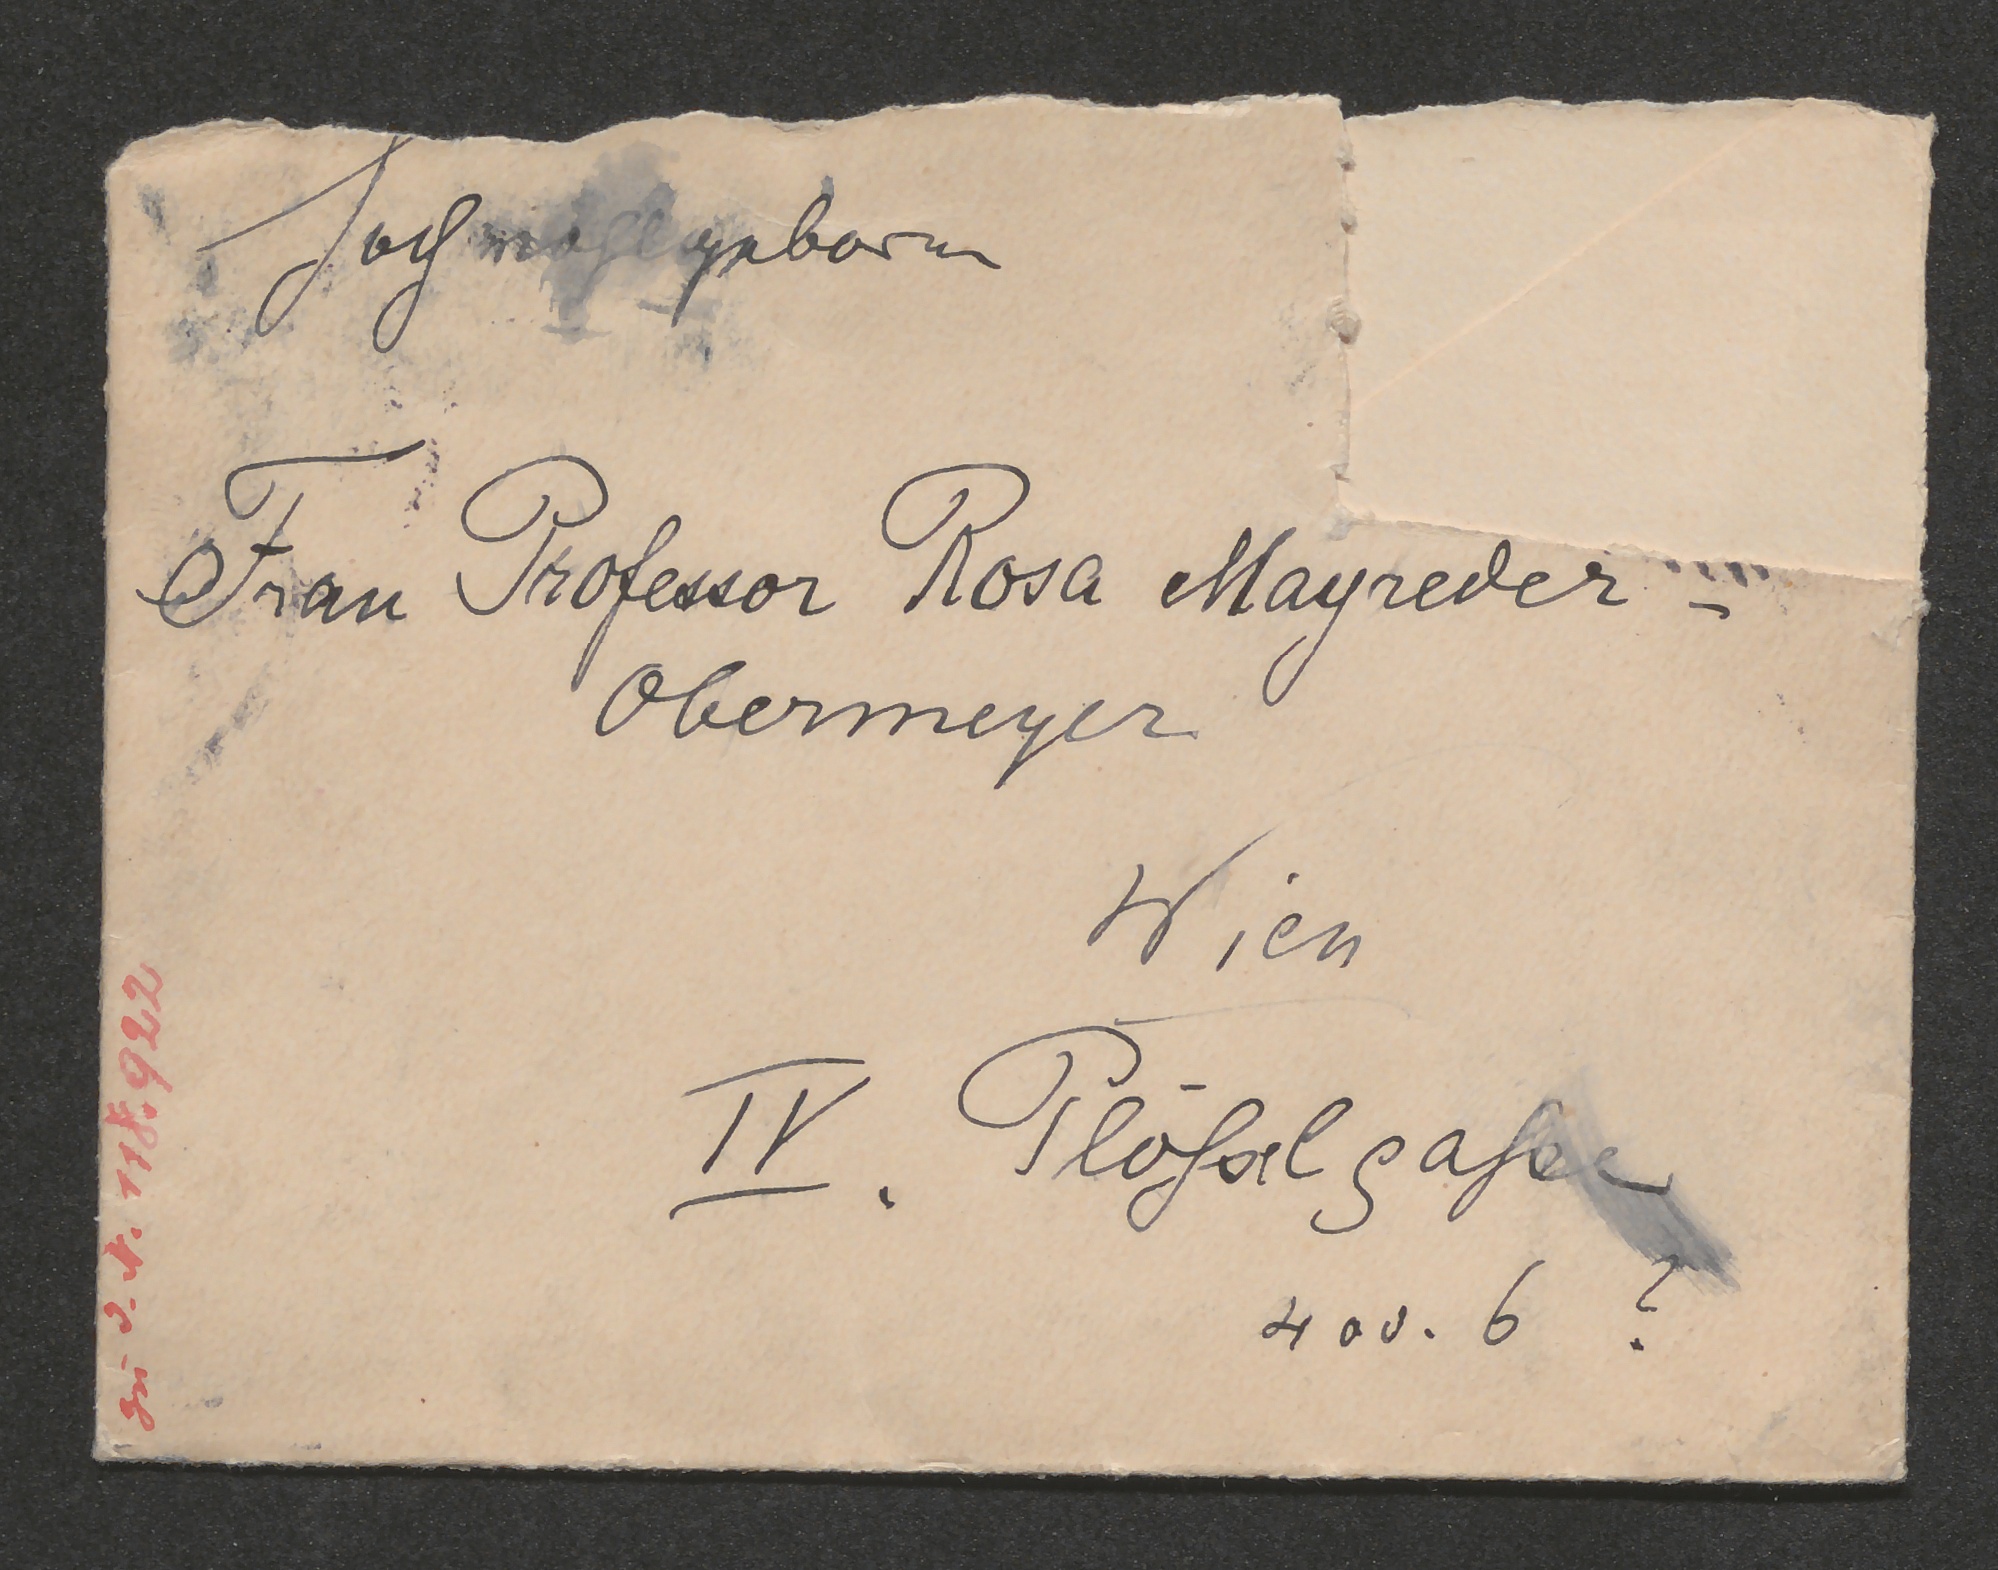 Hochwohlgeboren
Frau Professor Rosa Mayreder-
Obermeyer
Wien
IV. Plößelgaße
4 od. 6 ?
zu I. N. 118.922